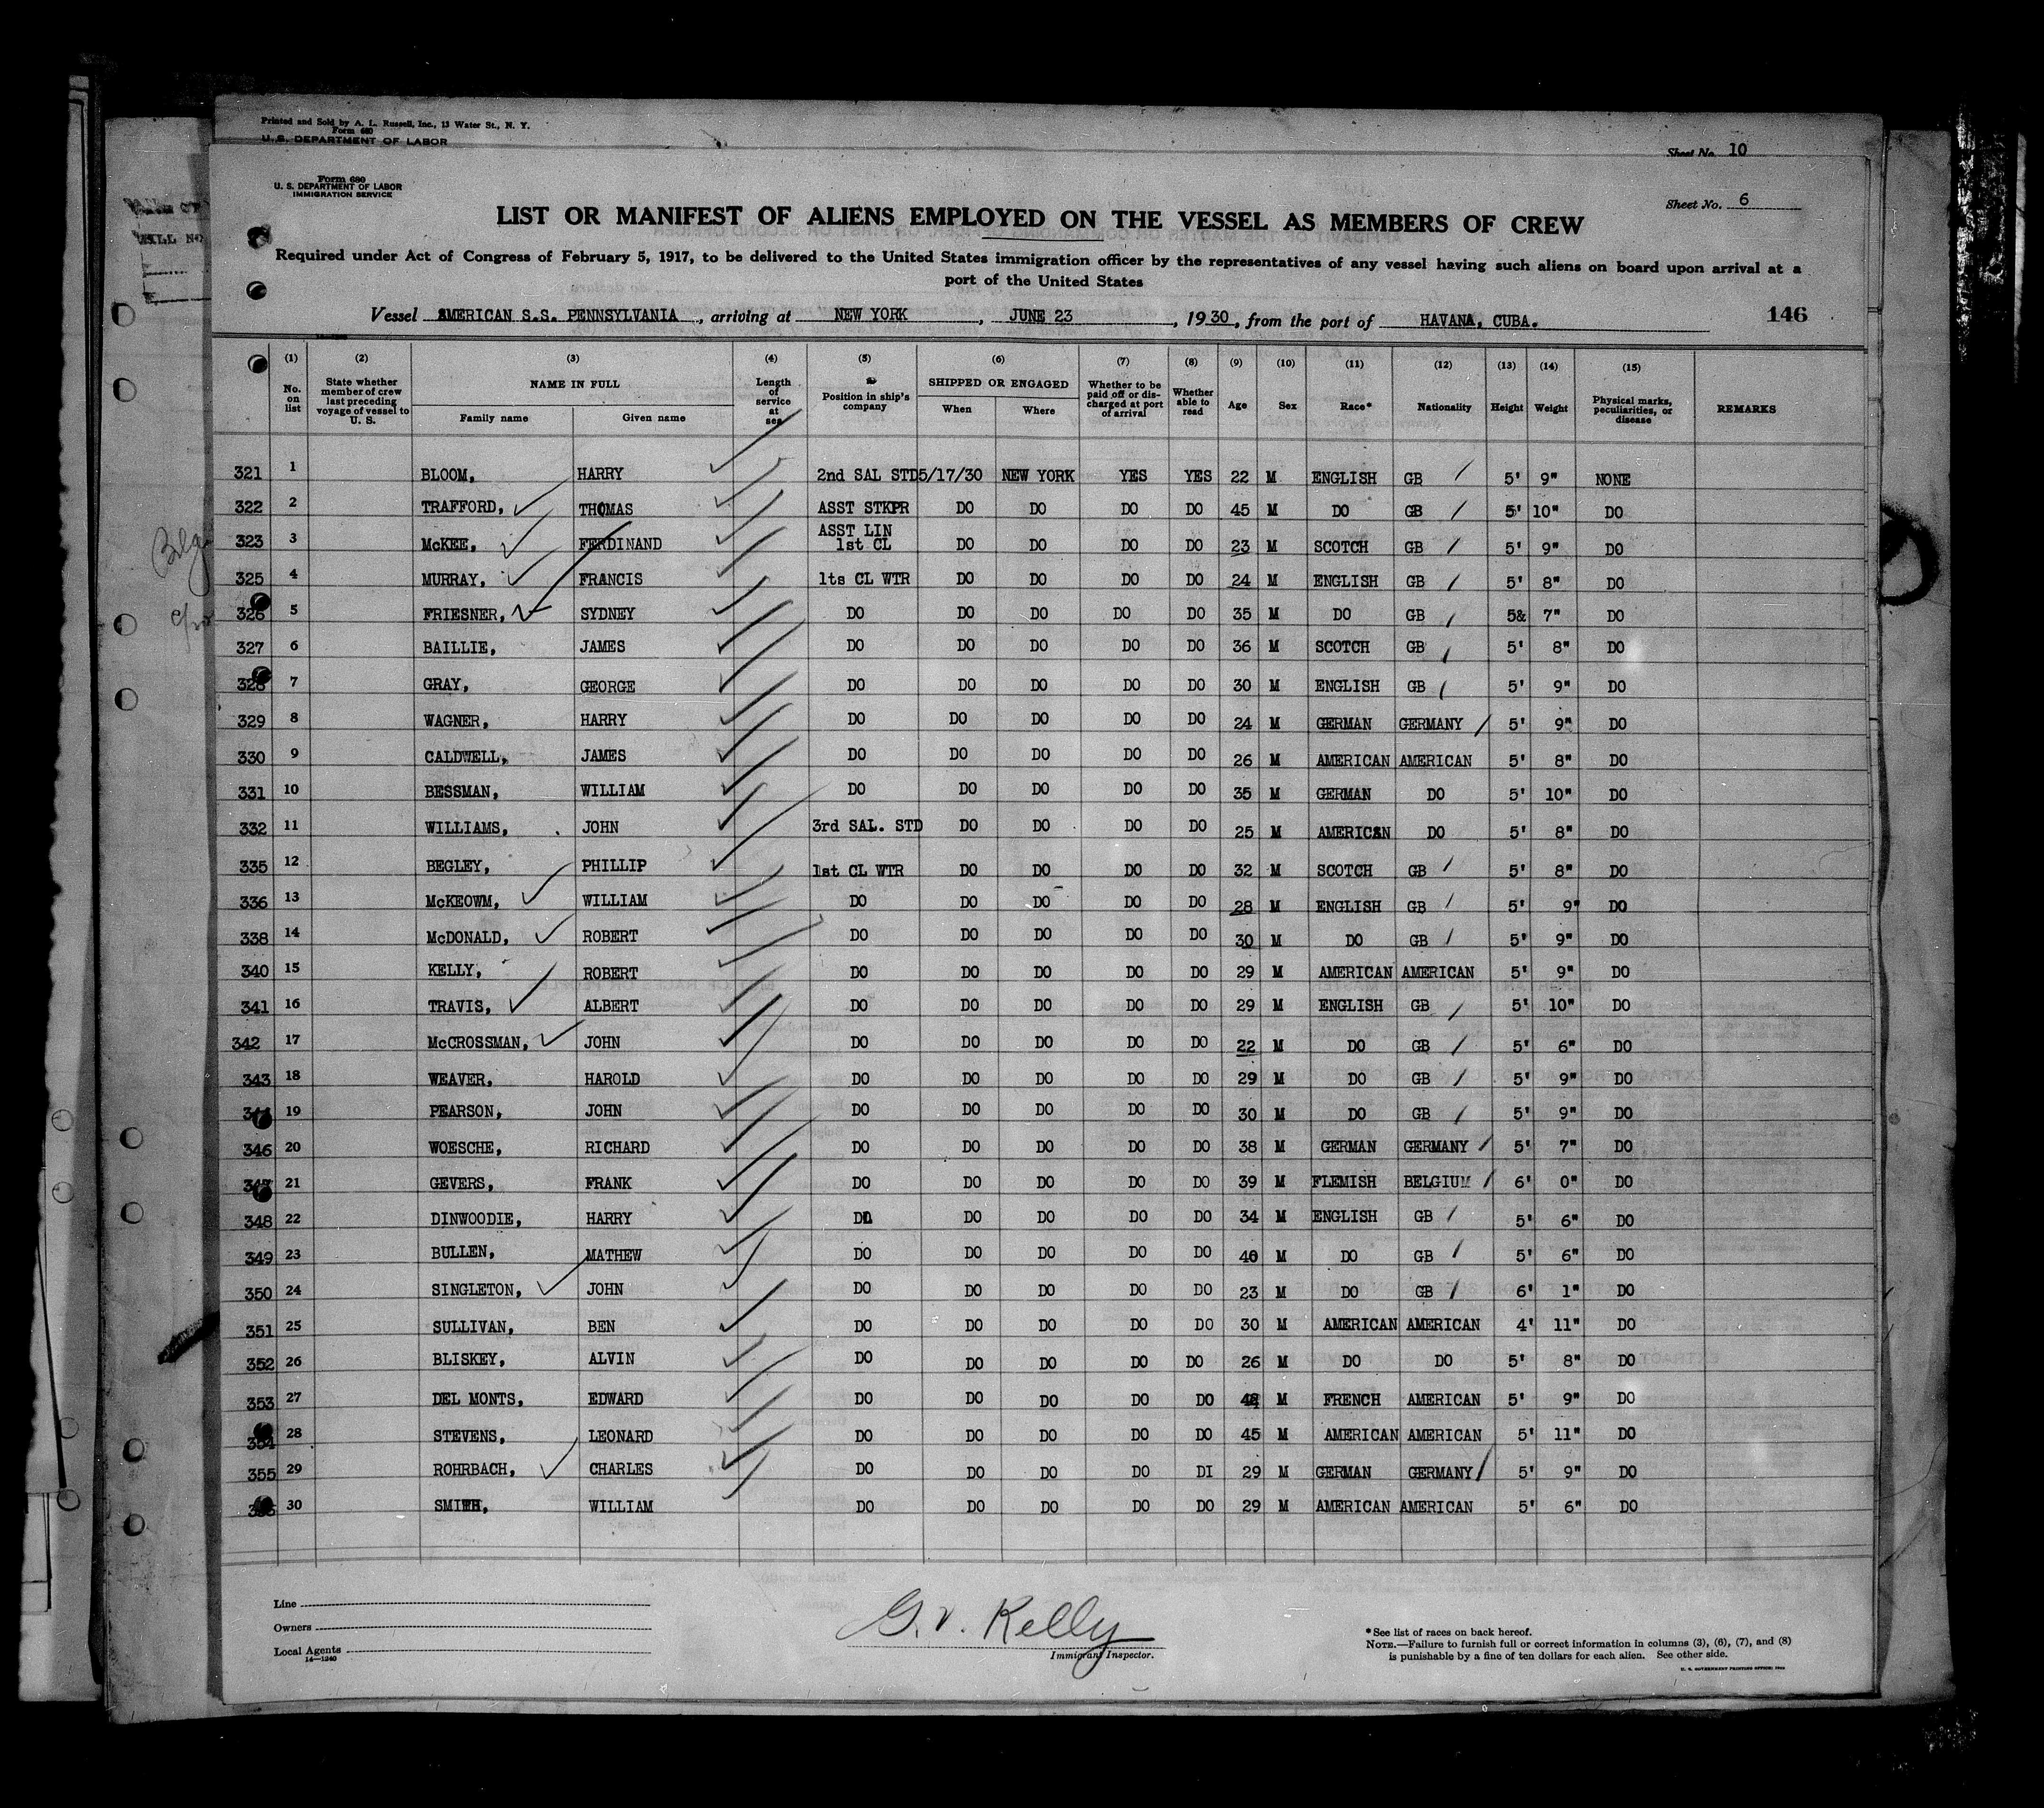 Printed and Sold by A. L. Russell, Inc., 13 Water St., N. Y.
Form 680
U. S. DEPARTMENT OF LABOR
Sheet No. 10
Form 680
U. S. DEPARTMENT OF LABOR
IMMIGRATION SERVICE
Sheet No. 6
LIST OR MANIFEST OF ALIENS EMPLOYED ON THE VESSEL AS MEMBERS OF CREW
Required under Act of Congress of February 5, 1917, to be delivered to the United States immigration officer by the representatives of any vessel having such aliens on board upon arrival at a
port of the United States
Vessel AMERICAN S.S. PENNSYLVANIA, arriving at NEW YORK, JUNE 23, 1930, from the port of HAVANA, CUBA. 146
(1) (2) (3) (4) (5) (6) (7) (8) (9) (10) (11) (12) (13) (14) (15)
No. on list State whether member of crew last preceding voyage of vessel to U. S. NAME IN FULL Family name Given name Length of service at sea Position in ship's company SHIPPED OR ENGAGED When Where Whether to be paid off or discharged at port of arrival Whether able to read Age Sex Race* Nationality Height Weight Physical marks, peculiarities, or disease REMARKS
321 1 BLOOM, HARRY 2nd SAL STD 5/17/30 NEW YORK YES YES 22 M ENGLISH GB 5' 9" NONE
322 2 TRAFFORD, THOMAS ASST STKPR DO DO DO DO 45 M DO GB 5' 10" DO
323 3 McKEE, FERDINAND ASST LIN 1st CL DO DO DO DO 23 M SCOTCH GB 5' 9" DO
325 4 MURRAY, FRANCIS 1ts CL WTR DO DO DO DO 24 M ENGLISH GB 5' 8" DO
326 5 FRIESNER, SYDNEY DO DO DO DO DO 35 M DO GB 5& 7" DO
327 6 BAILLIE, JAMES DO DO DO DO DO 36 M SCOTCH GB 5' 8" DO
328 7 GRAY, GEORGE DO DO DO DO DO 30 M ENGLISH GB 5' 9" DO
329 8 WAGNER, HARRY DO DO DO DO DO 24 M GERMAN GERMANY 5' 9" DO
330 9 CALDWELL, JAMES DO DO DO DO DO 26 M AMERICAN AMERICAN 5' 8" DO
331 10 BESSMAN, WILLIAM DO DO DO DO DO 35 M GERMAN DO 5' 10" DO
332 11 WILLIAMS, JOHN 3rd SAL. STD DO DO DO DO 25 M AMERICAN DO 5' 8" DO
335 12 BEGLEY, PHILLIP 1st CL WTR DO DO DO DO 32 M SCOTCH GB 5' 8" DO
336 13 McKEOWM, WILLIAM DO DO DO DO DO 28 M ENGLISH GB 5' 9" DO
338 14 McDONALD, ROBERT DO DO DO DO DO 30 M DO GB 5' 9" DO
340 15 KELLY, ROBERT DO DO DO DO DO 29 M AMERICAN AMERICAN 5' 9" DO
341 16 TRAVIS, ALBERT DO DO DO DO DO 29 M ENGLISH GB 5' 10" DO
342 17 McCROSSMAN, JOHN DO DO DO DO DO 22 M DO GB 5' 6" DO
343 18 WEAVER, HAROLD DO DO DO DO DO 29 M DO GB 5' 9" DO
19 PEARSON, JOHN DO DO DO DO DO 30 M DO GB 5' 9" DO
346 20 WOESCHE, RICHARD DO DO DO DO DO 38 M GERMAN GERMANY 5' 7" DO
347 21 GEVERS, FRANK DO DO DO DO DO 39 M FLEMISH BELGIUM 6' 0" DO
348 22 DINWOODIE, HARRY DO DO DO DO DO 34 M ENGLISH GB 5' 6" DO
349 23 BULLEN, MATHEW DO DO DO DO DO 40 M DO GB 5' 6" DO
350 24 SINGLETON, JOHN DO DO DO DO DO 23 M DO GB 6' 1" DO
351 25 SULLIVAN, BEN DO DO DO DO DO 30 M AMERICAN AMERICAN 4' 11" DO
352 26 BLISKEY, ALVIN DO DO DO DO DO 26 M DO DO 5' 8" DO
353 27 DEL MONTS, EDWARD DO DO DO DO DO M FRENCH AMERICAN 5' 9" DO
354 28 STEVENS, LEONARD DO DO DO DO DO 45 M AMERICAN AMERICAN 5' 11" DO
355 29 ROHRBACH, CHARLES DO DO DO DO DI 29 M GERMAN GERMANY 5' 9" DO
30 SMITH, WILLIAM DO DO DO DO DO 29 M AMERICAN AMERICAN 5' 6" DO
Line
Owners
Local Agents
14—1240
G. V. Kelly
Immigrant Inspector.
*See list of races on back hereof.
NOTE.—Failure to furnish full or correct information in columns (3), (6), (7), and (8)
is punishable by a fine of ten dollars for each alien. See other side.
U. S. GOVERNMENT PRINTING OFFICE